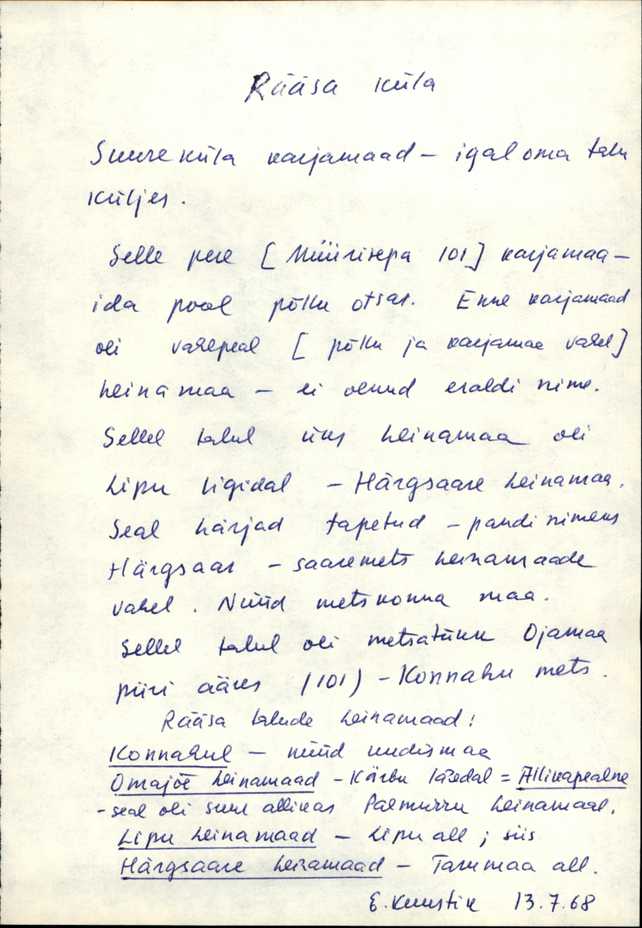 Rääsa küla
Suureküla karjamaad – igal oma talu
küljes.
Selle pere [Müürisepa 101] karjamaa –
ida pool põllu otsas. Enne karjamaad
oli vahepeal [põllu ja karjamaa vahel]
heinamaa – ei olnud eraldi nime.
Sellel talul üks heinamaa oli
Lipu ligidal – Härgsaare heinamaa.
Seal härjad tapetud – pandi nimeks
Härgsaar – saaremets heinamaade
vahel. Nüüd metskonna maa.
Sellel talul oli metsatükk Ojamaa
piiri ääres (101) – Konnahu mets.
Rääsa talude heinamaad:
Konnahul – nüüd uudismaa
Omajõe heinamaad – Kärbu lähedal = Allikapealne
- seal oli suur allikas Palmurru heinamaal.
Lipu heinamaad – Lipu all; siis
Härgsaare heinamaad – Tarumaa all.
E. Kuustik 13.7.68